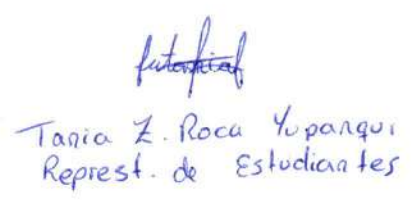 Tania Z. Roca Yupanqui
Represt. de Estudiantes